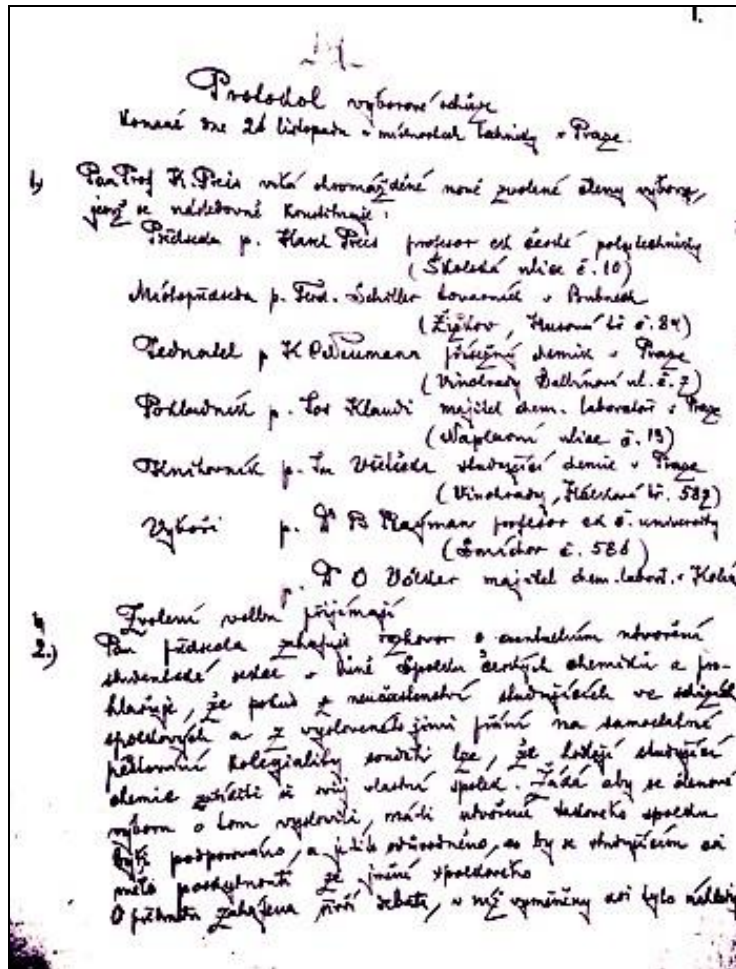 1.
Protokol výborové schůze
konané dne listopadu v místnostech techniky v Praze.
1) Pan Prof K. Preis vítá shromážděné nově zvolené členy výboru,
jenž se následovně konstituuje:
Předseda p. Karel Preis profesor cs české polytechniky
(Školská ulice č. 10)
Místopředseda p. Ferd. Schiller továrník v Bubnech
(Žižkov, Husova tř č. 84)
Jednatel p K C Neumann přísežný chemik v Praze
(Vinohrady ul. č. 7)
Pokladník p. Klaudi majitel chem. laboratoř v Praze
(Náplavní ulice č. 13)
Knihovník p. Všetečka studující chemie v Praze
(Vinohrady, Hálkova tř. 582)
Výboři p. Dr B Raýman profesor cs č. university
(Smíchov č. 586)
p. Dr O Völcker majitel chem. laboř. v Kolíně
Zvolení volbu přijímají
2.) Pan předseda zahajuje rozhovor o eventuelním utvoření
studentské sekce v lůně Spolku českých chemiků a pro-
hlašuje, že pokud z neúčastenství studujících ve schůzích
spolkových a z vysloveného jimi přání na samostatné
pěstování kolegiality souditi lze, že hodlají studující
chemie zříditi si svůj vlastní spolek. Žádá aby se členové
výboru o tom vyslovili, má-li utvoření takového spolku
býti podporováno, a je-li odůvodněno, co by se studujícím asi
mělo poskytnouti ze jmění spolkového
O předmětu zahájena širší debata, v níž vyměněny asi tyto náhledy